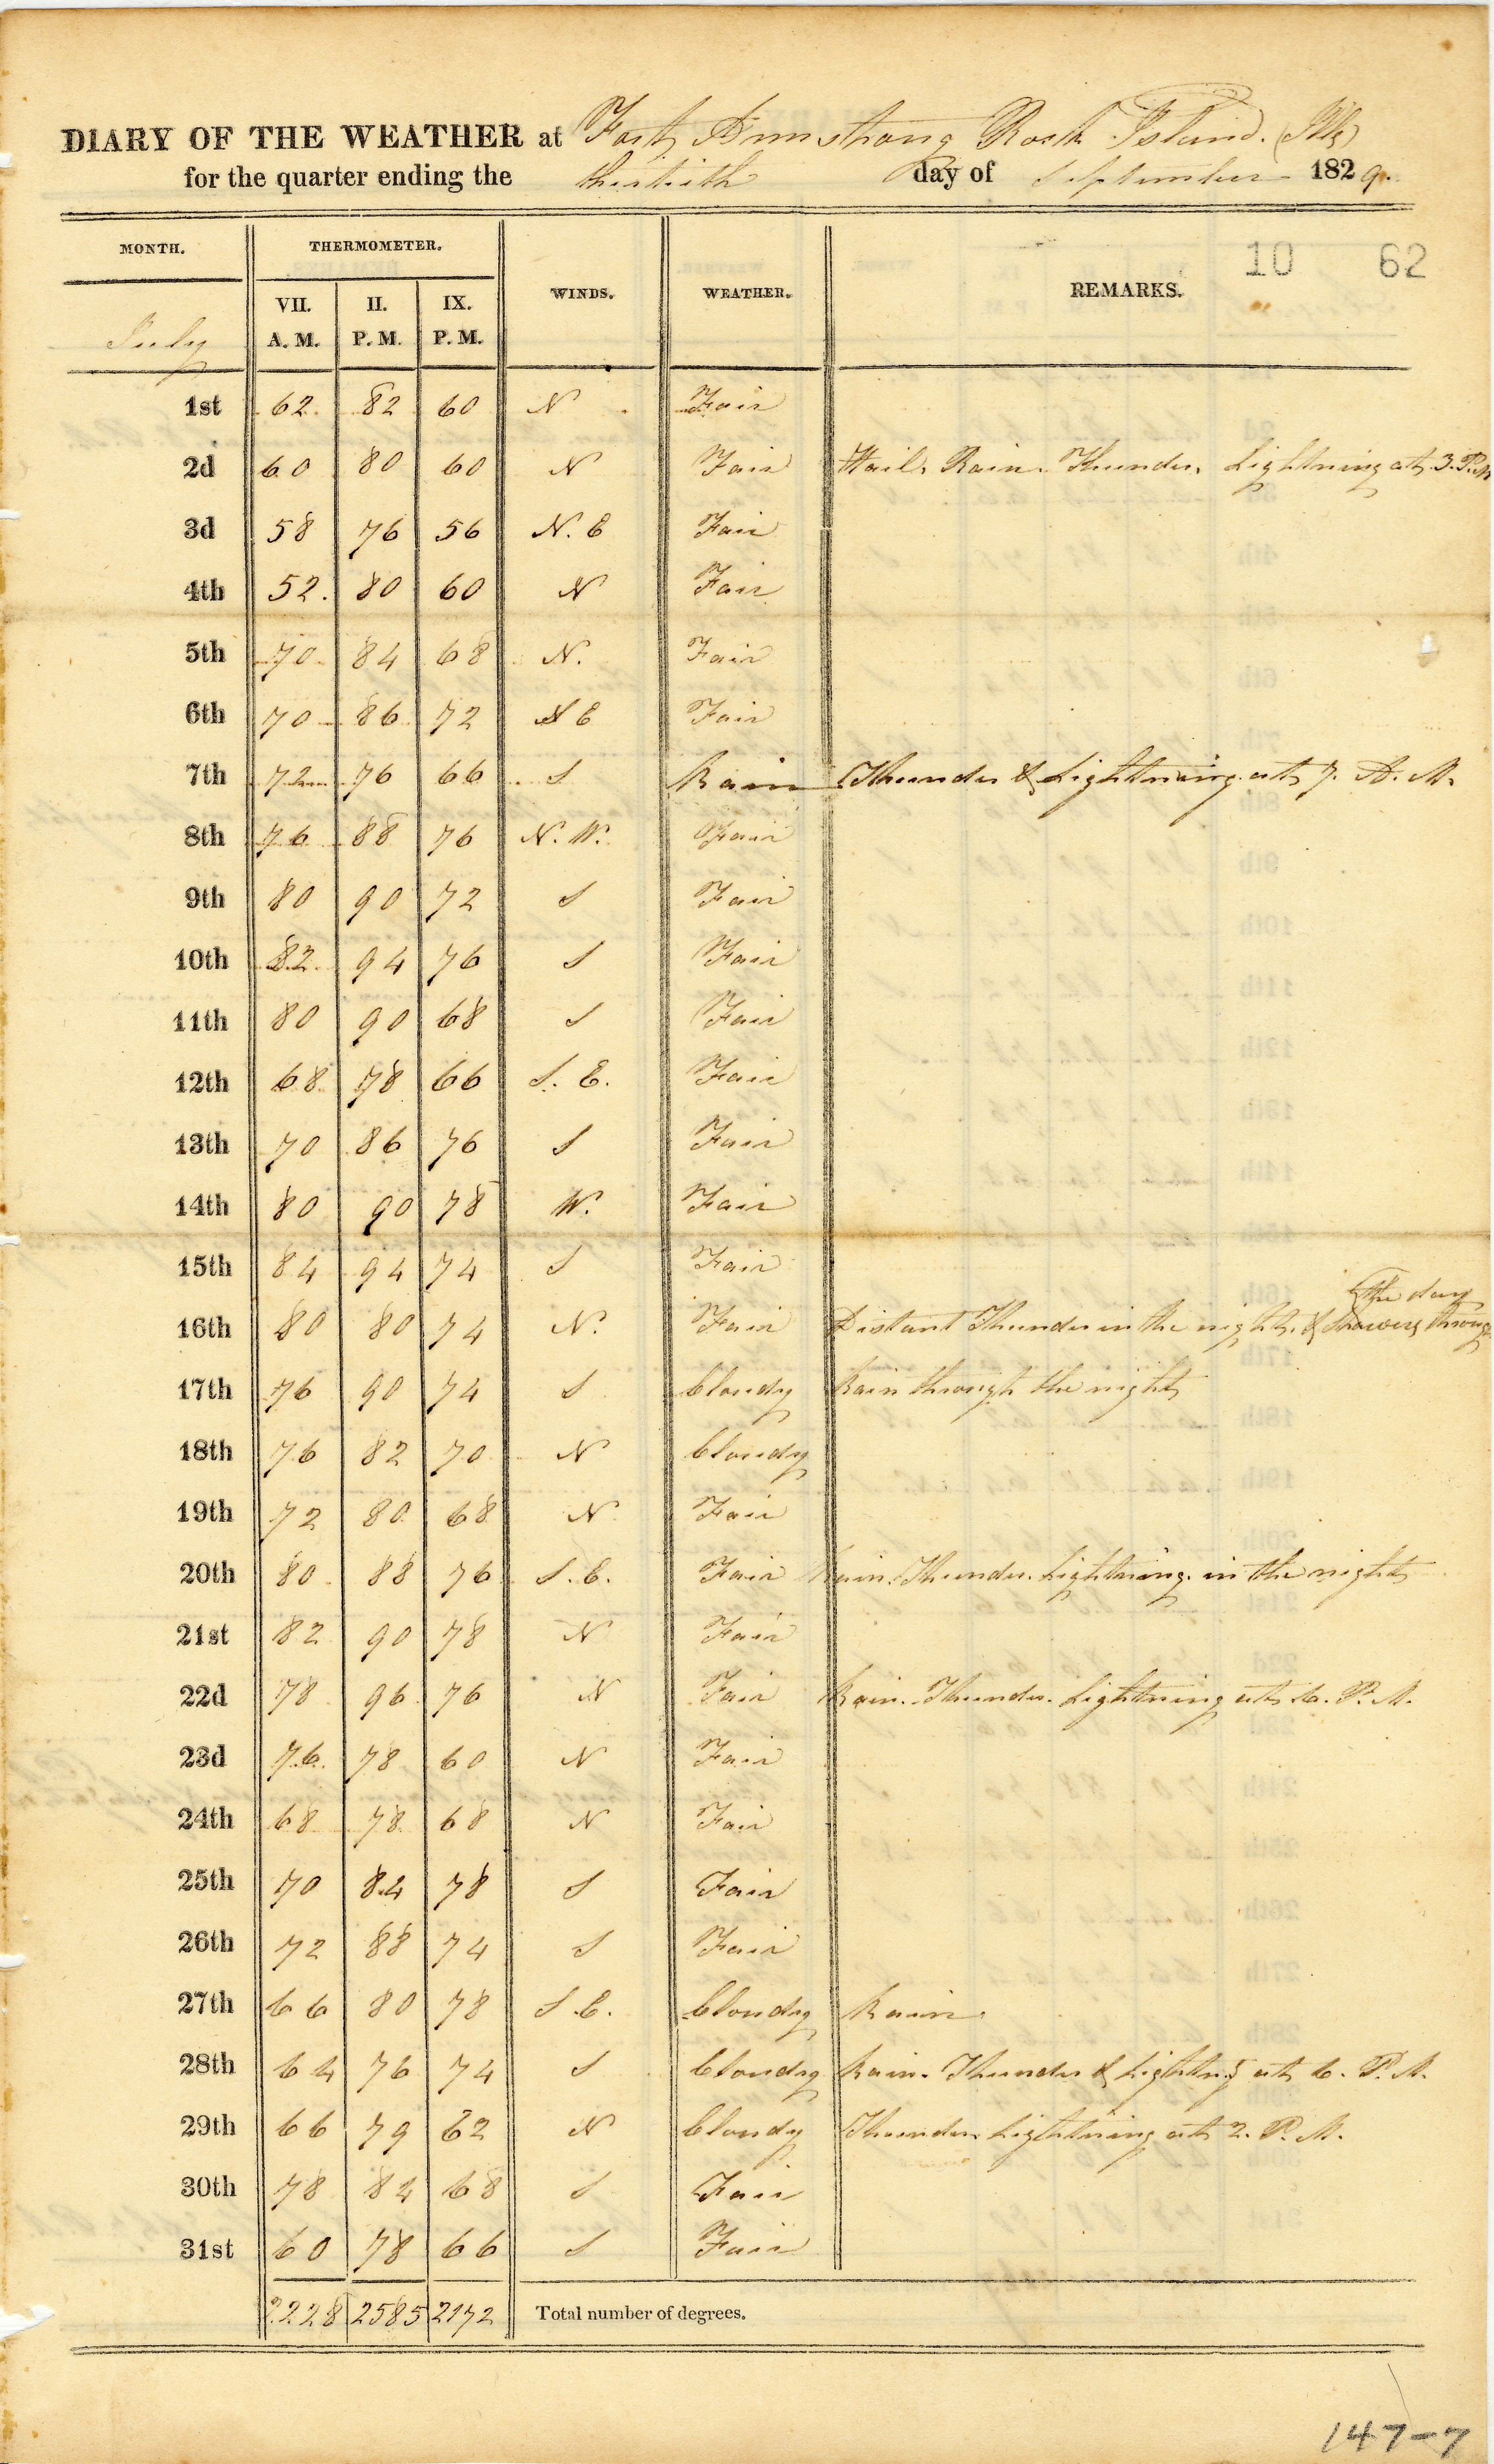 DIARY OF THE WEATHER at Fort Armstrong Rock Island. (Ills)
for the quarter ending the thirtieth day of September 1829.
MONTH. THERMOMETER. WINDS. WEATHER. REMARKS. 10 62
July VII. A. M. II. P. M. IX. P. M.
1st 62 82 60 N Fair
2d 60 80 60 N Fair Hail, Rain. Thunder, Lightning at 3. P.M
3d 58 76 56 N. E Fair
4th 52. 80 60 N Fair
5th 70 84 68 N. Fair
6th 70 86 72 S E Fair
7th 72 76 66 S Rain Thunder & Lightning at 7. A. M.
8th 76 88 76 N. W. Fair
9th 80 90 72 S Fair
10th 82 94 76 S Fair
11th 80 90 68 S Fair
12th 68 78 66 S. E. Fair
13th 70 86 76 S Fair
14th 80 90 78 W. Fair
15th 84 94 74 S Fair
16th 80 80 74 N. Fair Distant Thunder in the night. & Showers through the day
17th 76 90 74 S Cloudy Rain through the night
18th 76 82 70 N Cloudy
19th 72 80 68 N Fair
20th 80 88 76 S. E. Fair Rain. Thunder. Lightning. in the night
21st 82 90 78 N Fair
22d 78 96 76 N Fair Rain. Thunder. Lightning at 6. P. M.
23d 76 78 60 N Fair
24th 68 78 68 N Fair
25th 70 84 78 S Fair
26th 72 88 74 S Fair
27th 66 80 78 S. E. Cloudy Rain.
28th 64 76 74 S Cloudy Rain. Thunder & Lightning at 6. P. M.
29th 66 79 62 N Cloudy Thunder Lightning at 2. P. M.
30th 78 84 68 S Fair
31st 60 78 66 S Fair
2228 2585 2172 Total number of degrees.
147-7